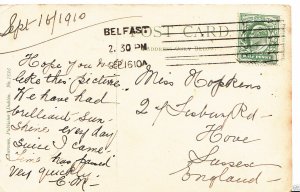 Sept 16/1910
BELFAST
2.30 PM
SEP 16 10
POST CARD
Hope you will
like this picture
We have had
brilliant sun-
shine every day
since I came.
Time has passed
very quickly.
E.M.
Miss Hopkins
2 Tisbury Rd-
Hove
Sussex
England-